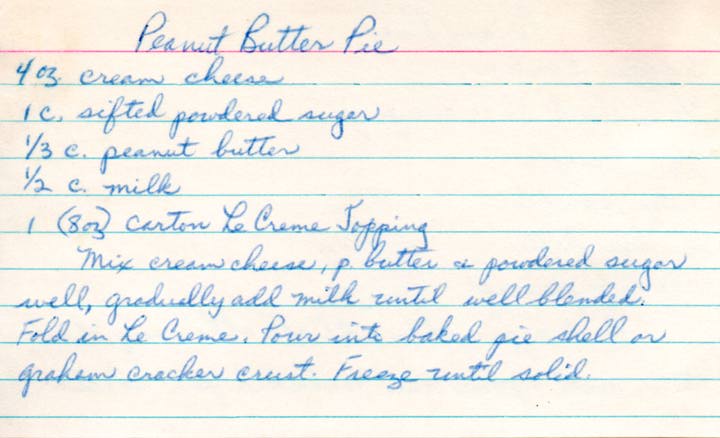 Peanut Butter Pie
4 oz. cream cheese
1 c. sifted powdered sugar
1/3 c. peanut butter
1/2 c. milk
1 (8oz) carton Le Creme Topping
Mix cream cheese, p. butter & powdered sugar
well, gradually add milk until well blended.
Fold in Le Creme. Pour into baked pie shell or
graham cracker crust. Freeze until solid.